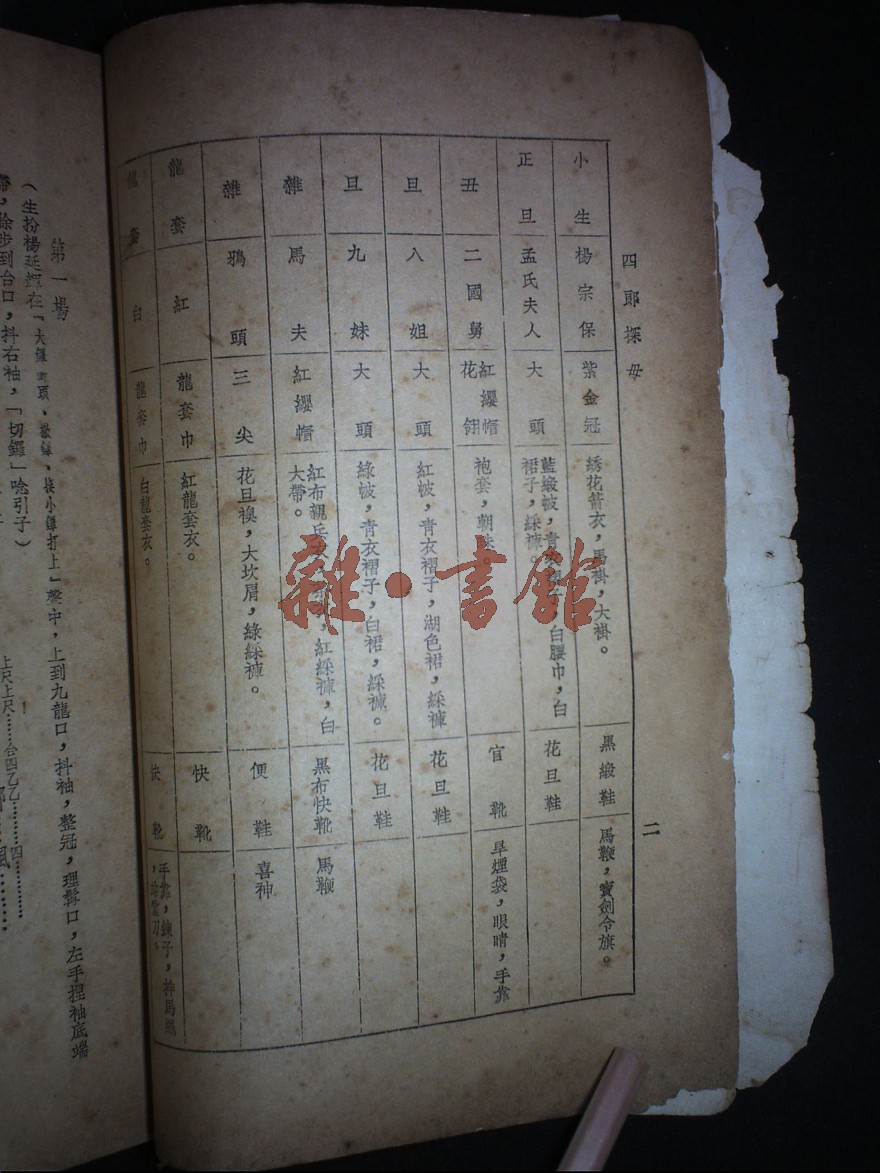 四郎探母
二
小生 楊宗保 紫金冠 綉花箭衣，馬褂，大褂。 黑緞鞋 馬鞭，寶劍令旗。
正旦 孟氏夫人 大頭 藍緞帔，青衣褶子，白腰巾，白
裙子，綵褲。 花旦鞋
丑 二國舅 紅纓帽
花翎 袍套，朝珠。 官靴 旱煙袋，眼晴，手靠
旦 八姐 大頭 紅帔，青衣褶子，湖色裙，綵褲 花旦鞋
旦 九妹 大頭 綠帔，青衣褶子，白裙，綵褲。 花旦鞋
雜 馬夫 紅纓帽 紅布親兵 紅綵褲，白
大帶。 黑布快靴 馬鞭
雜 鴉頭 三尖 花旦襖，大坎肩，綠綵褲。 便鞋 喜神
龍套 紅 龍套巾 紅龍套衣。 快靴
龍套 白 龍套巾 白龍套衣。 快靴 手靠，鍊子
雜·書館
第一場
（生扮楊延輝在「大鑼 頭、 、接小鑼打上」聲中，上到九龍口，抖袖，整冠，理髯口，左手捏袖底端
步到台口，抖右袖，「切鑼」唸引子）
上尺上尺……合四乙乙………四…………